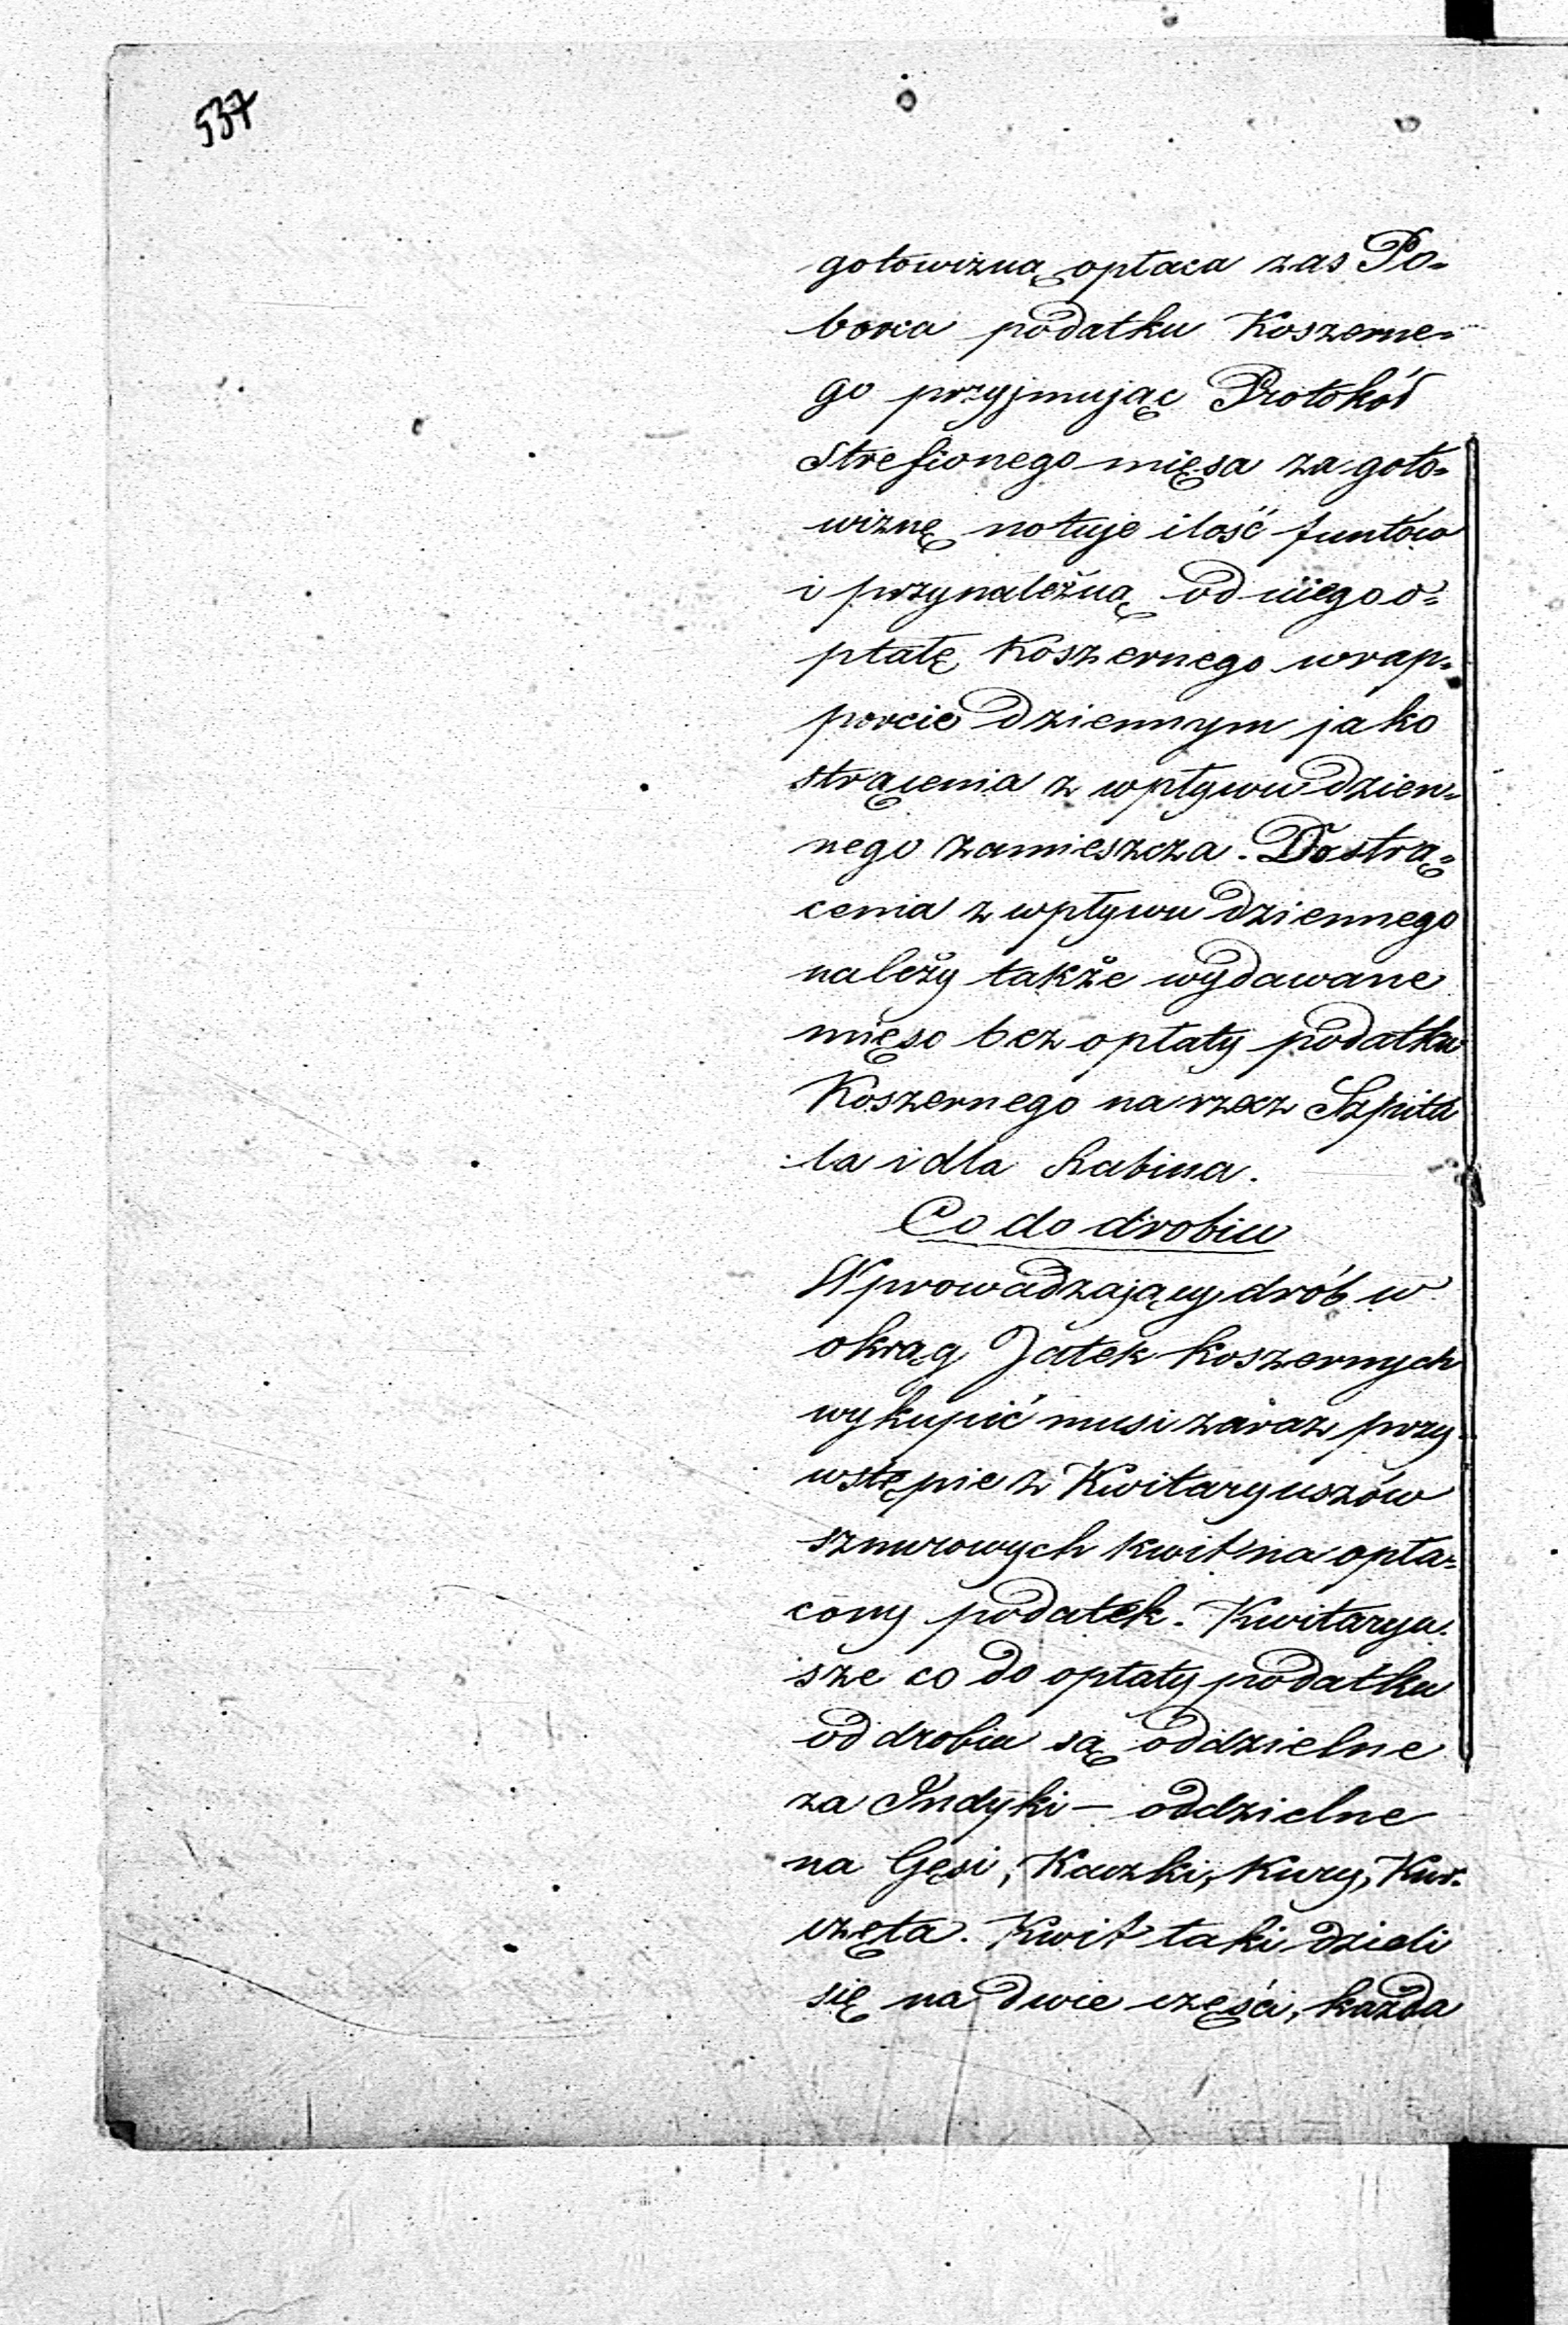 537
gotowizną opłaca zas Po-
borca podatku Koszerne-
go przyjmując Protokół
Strefionego mięsa za goto-
wiznę notuje ilość funtów
i przynależną od niego o-
płatę Koszernego w rap-
porcie dziennym jako
strącenia z wpływu dzien-
nego zamieszcza. Do strą-
cenia z wpływu dziennego
należy także wydawane
mięso bez opłaty podatku
Koszernego na rzecz Szpita
la i dla Rabina.
Co do drobiu
Wprowadzający drób w
okrąg Jatek Koszernych
wykupić musi zaraz przy
wstępie z Kwitaryuszów
sznurowych kwit na opła-
cony podatek. Kwitaryu-
sze co do opłaty podatku
od drobiu są oddzielne
za Indyki — oddzielne
na Gęsi, Kaczki, Kury, Kur-
częta. Kwit taki dzieli
się na dwie części, każda